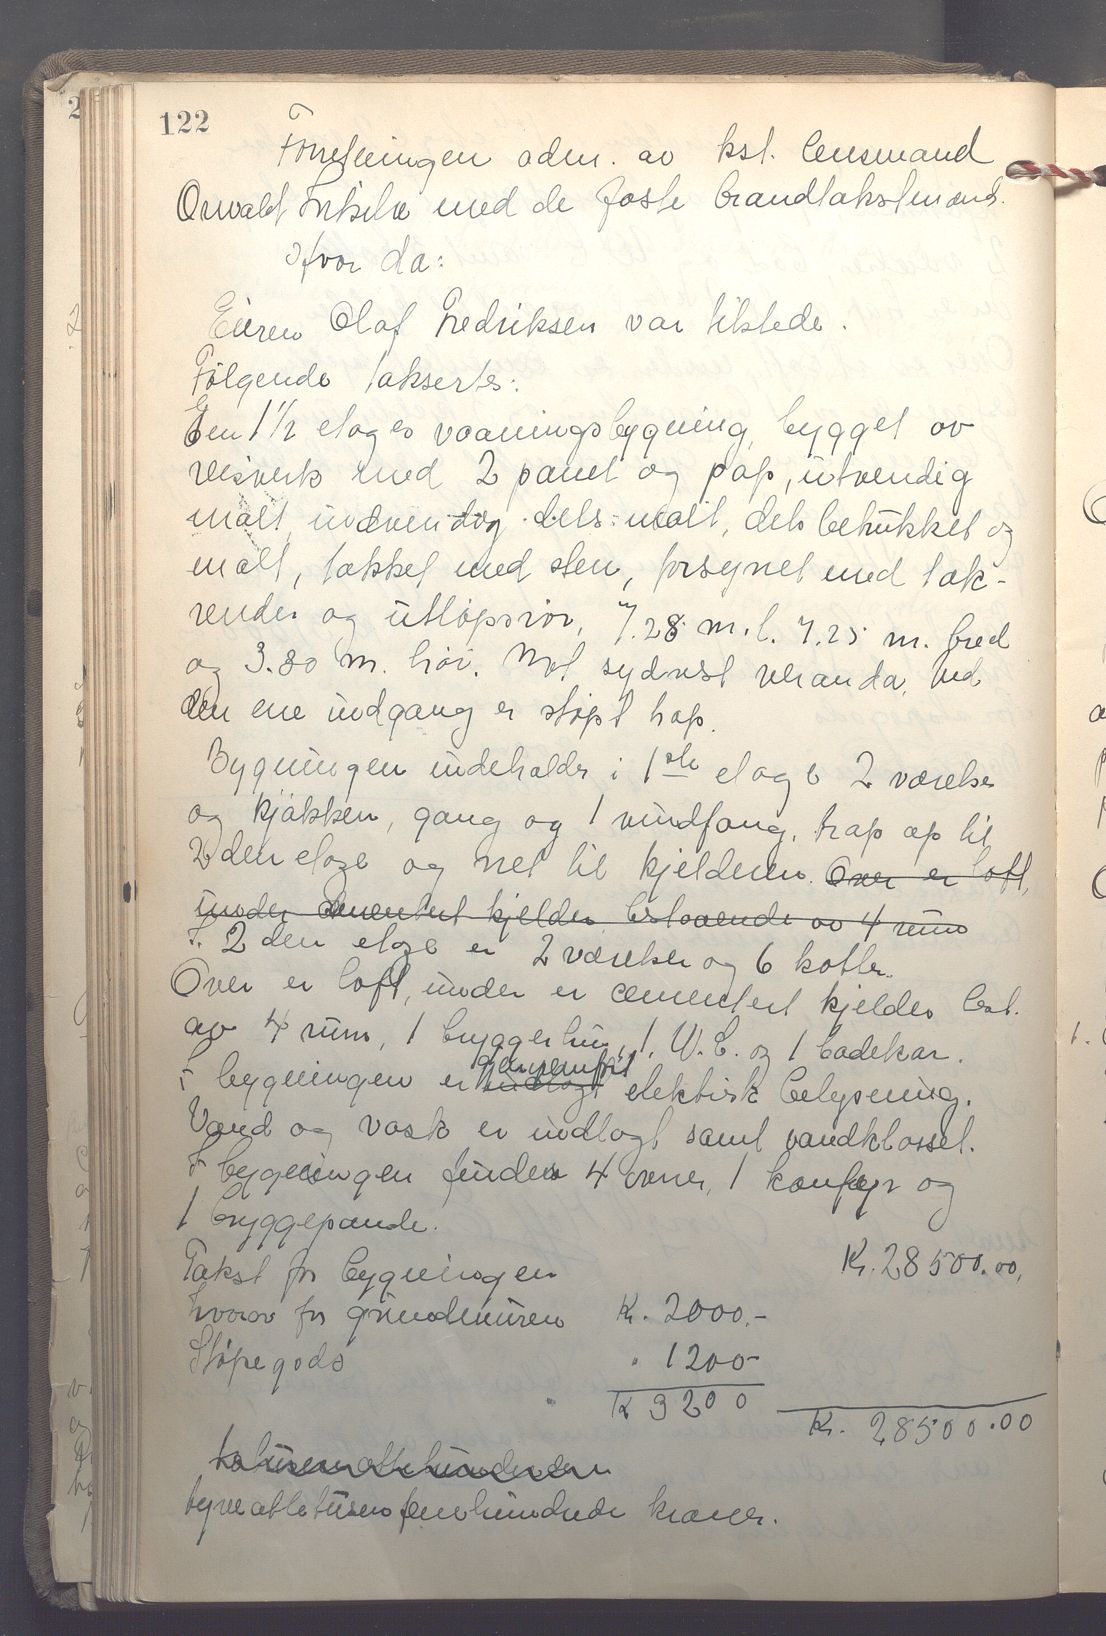 122
Forretningen adm. av kst. lensmand
Osvald med de faste brandtakstmænd.
Hvor da:
Eieren Olaf Fredriksen var tilstede.
Følgende taksertes:
En 1 1/2 etages vaaningsbygning, bygget av
reisverk med 2 panel og pap, utvendig
malt, indvendig dels malt, dels betrukket og
malt, tækket med sten, forsynet med tak-
render og utløpsrør, 7.28 m. l. 7.25 m. bred
og 3.80 m. høi. Mot sydvest veranda, ved
den ene indgang er støpt trap.
Bygningen indeholder i 1ste etage 2 værelser
og kjøkken, gang og 1 vindfang, trap op til
2den etage og ned til kjelderen. Over er loft,
under cementert kjelder bestaaende av 4 rum
I 2den etage er 2 værelser og 6 kotter.
Over er loft, under er cementert kjelder best.
av 4 rum, 1 bryggerhus, 1 W.C. og 1 badekar.
I bygningen er indlagt elektrisk belysning.
Vand og vask er indlagt samt vandklosset.
I bygningen findes 4 ovner, 1 komfyr og
1 bryggepande.
Takst for bygningen Kr. 28500.00,
hvorav for grundmuren Kr. 2000.-
Støpegods " 1200-
Kr 3200 Kr. 28500.00
tyveottetusen femhundrede kroner.